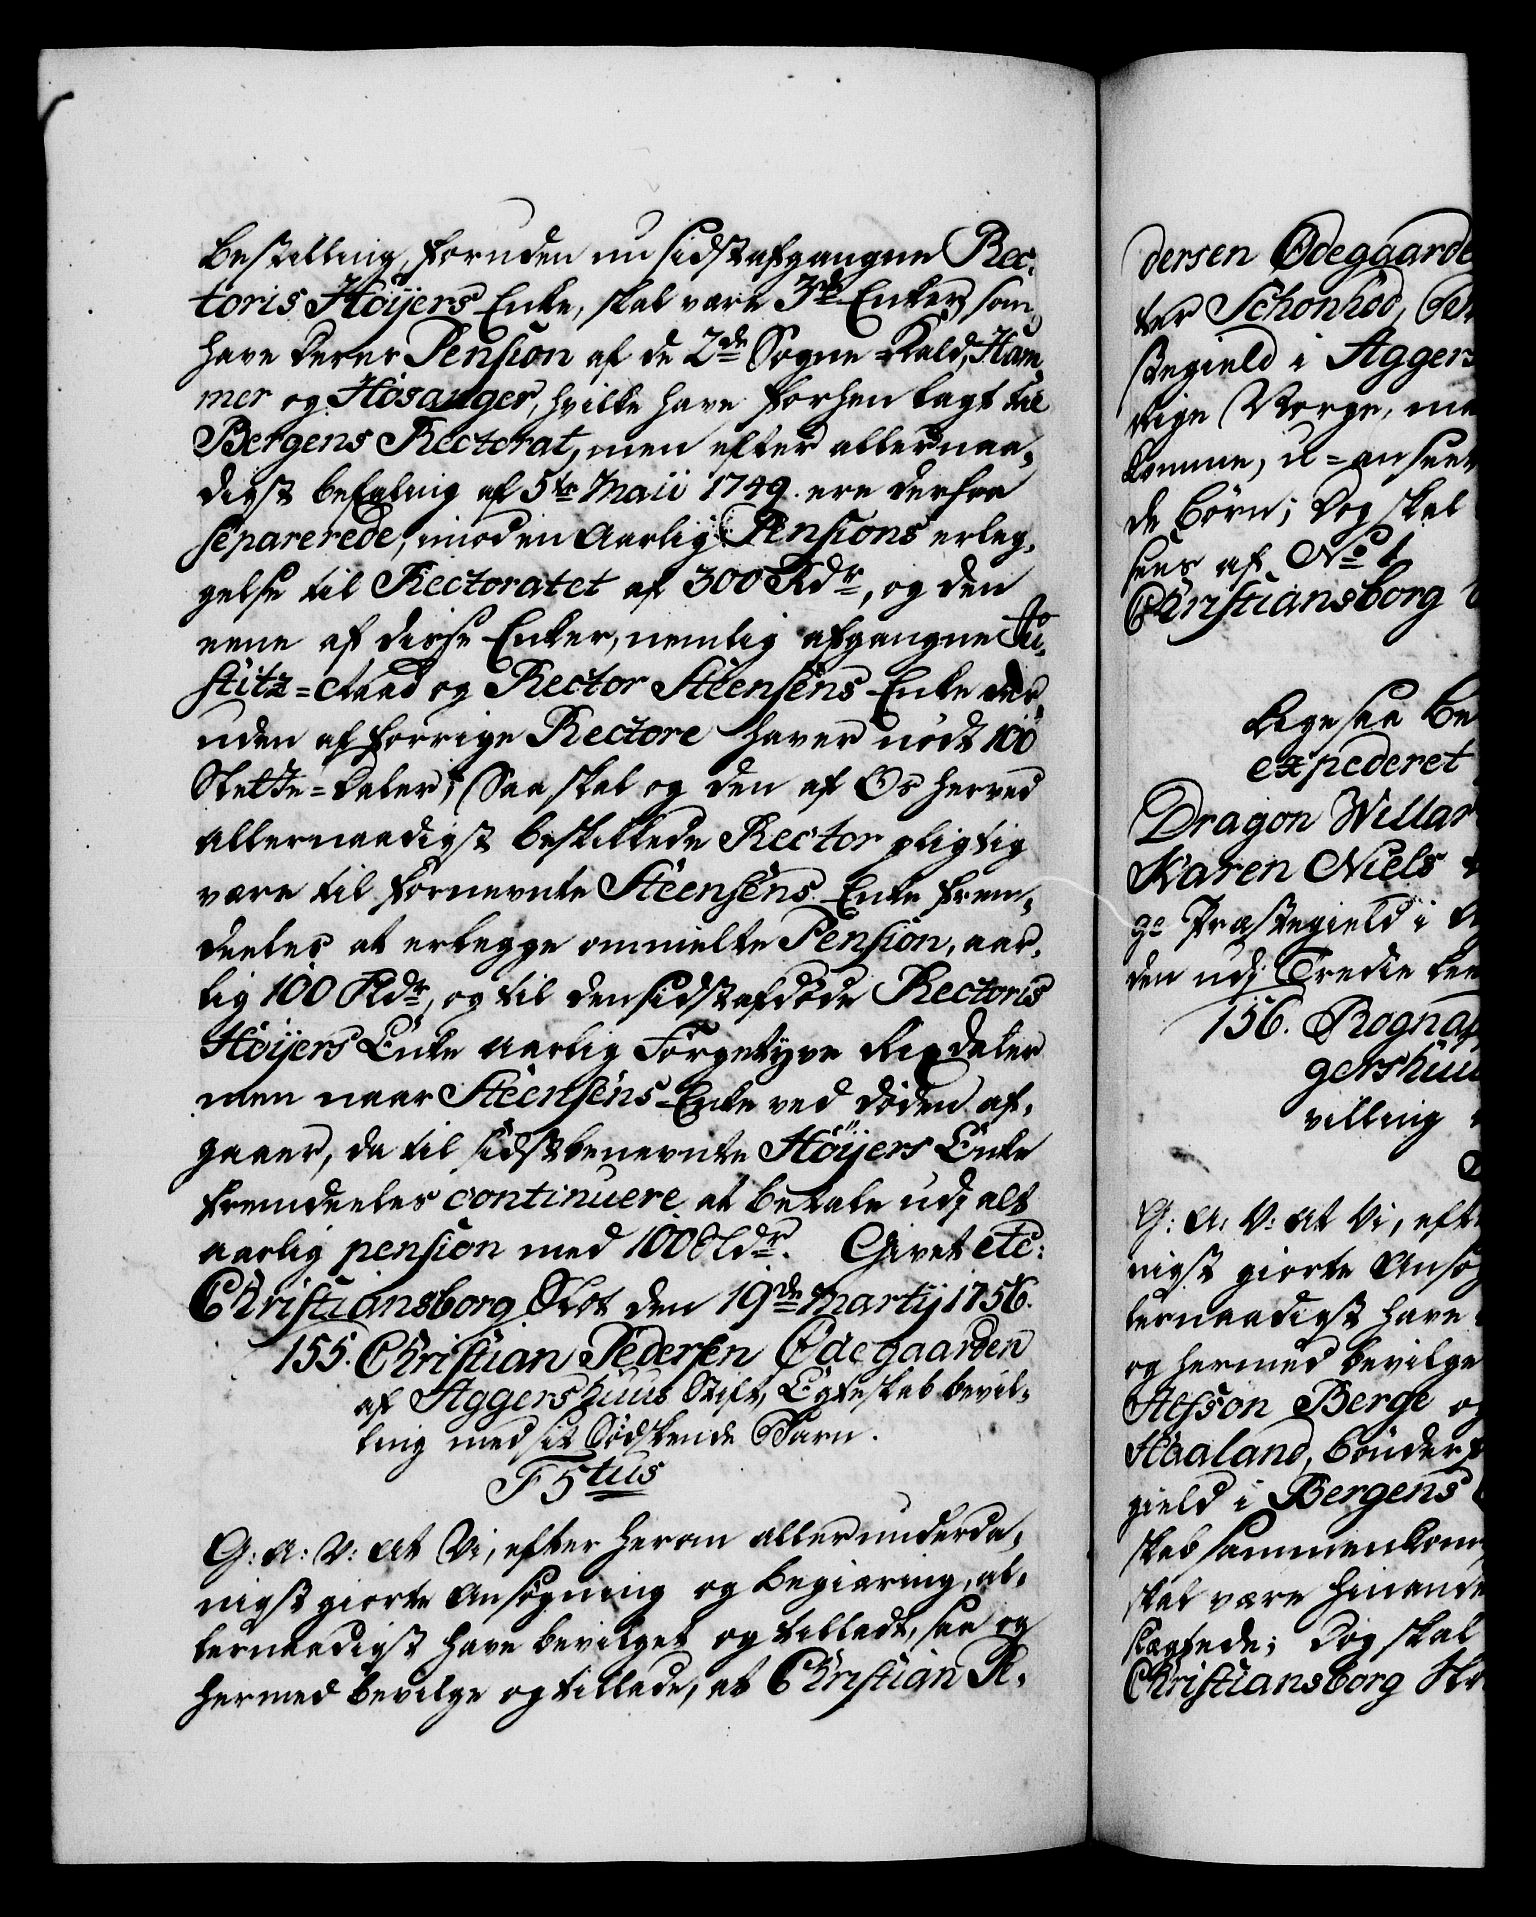 bestilling, foruden nu sidstafgangne Rec-
toris Höijers Enke, skal være 3de Enker, som
have deres Pension af de 2de Sogne-Kald, Ham-
mer og Hosanger, hvilke have forhen lagt til
Bergens Rectorat, men efter allernaa-
digst befaling af 5te Maii 1749. ere derfra
separerede, imod en Aarlig Pensions erleg-
gelse til Rectoratet af 300 Rdr, og den
eene af disse Enker, nemlig afgangne Ju-
stitz-Raad og Rector Steensens Enke
uden af forrige Rectore haver nödt 100
Slette-daler; Saa skal og den af Os herved
allernaadigst beskikkede Rector pligtig
være til fornevnte Steensens Enke frem-
deeles at erlegge ommelte Pension, aar-
lig 100 Rdr, og til den sidstafdöde Rectoris
Höijers Enke aarlig Förgetyve Rixdaler
men naar Steensens Enke ved döden af-
gaaer, da til sidstbenevnte Höijers Enke
fremdeeles continuere at betale udj alt
aarlig pension med 100 Rdr. Givet etc:
Christiansborg Slot den 19de Martij 1756.
155. Christian Pedersen Ödegaarden
af Aggershuus Stift, Egteskab bevil-
ling med sit Södskende Barn.
F 5tus
G: A: V: At Vi, efter herom allerunderda-
nigst giorte Ansögning og begiæring, al-
lernaadigst have bevilget og tilladt, saa og
hermed bevilge og tillade, at Christian P-
dersen Ödegaarde
ter Schonhod,
stegield i Aggers
Rige Norge, ma
komme, u-anseet
de börn; dog skal
sees af No 1
Christiansborg
Ligesaa be
expederet
Dragon Willar
Karen Niels
ge Præstegield i A
den udj Tredie lee
156. Rogna
gershuu
villing
G: A: V: At Vi, eft
nigst giorte Ansög
lernaadigst have
og hermed bevilge
Alfson Berge og
Haaland, bönder
gield i Bergens
skab sammenkom
skal være hinande
slægtede; dog skal
Christiansborg